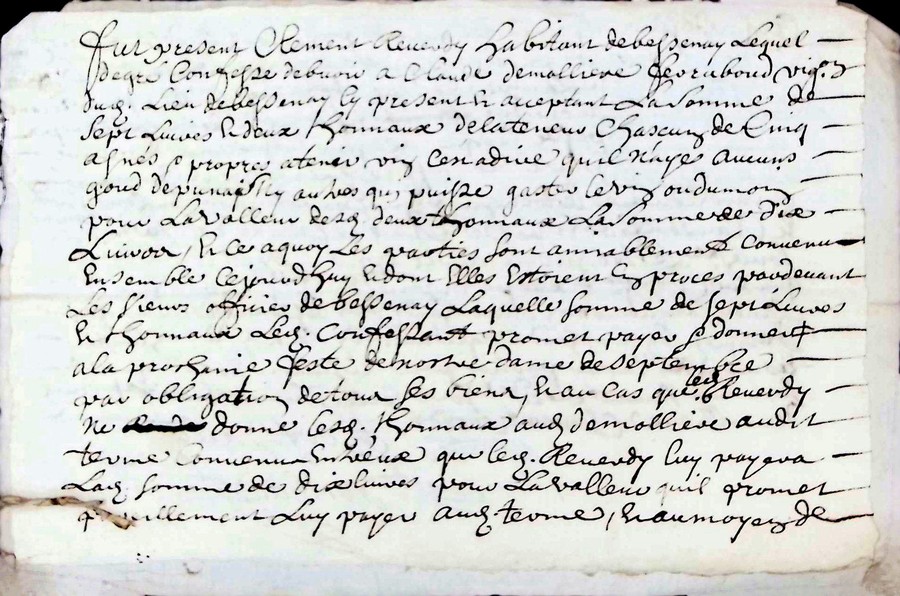 Fut present Clement Reverdy habitant de bessenay Lequel
degré Confesse debvoir a Claude demolliere vig.
dud. Lieu de bessenay Cy present & acceptant La Somme de
Sept Livres & deux thonnaux de la teneur Chascung de Cinq
asnés & propres a tenir vin C'est a dire quil n'aye aucung
goud de punais ny autres qui puisse gaster le vin ou du moin
pour La valleur desd. deux thonnaux La Somme de dix
Livres, & Ce a quoy Les parties sont amiablement Convenu
Ensemble Cejourdhuy & dont Elles Estoient En proces pardevant
Les Sieurs officier de bessenay Laquelle somme de sept Livres
& thonnaux Led. Confessant promet payer & donner
a la prochaine feste de nostre dame de Septembre
par obligation de tous ses biens, & au Cas que led. Reverdy
Ne donne lesd. thonnaux aud. demolliere audit
terme Convenu que led. Reverdy luy payera
Lad. somme de dix livres pour La valleur quil promet
pareillement Luy payer aud. terme, & au moyen de